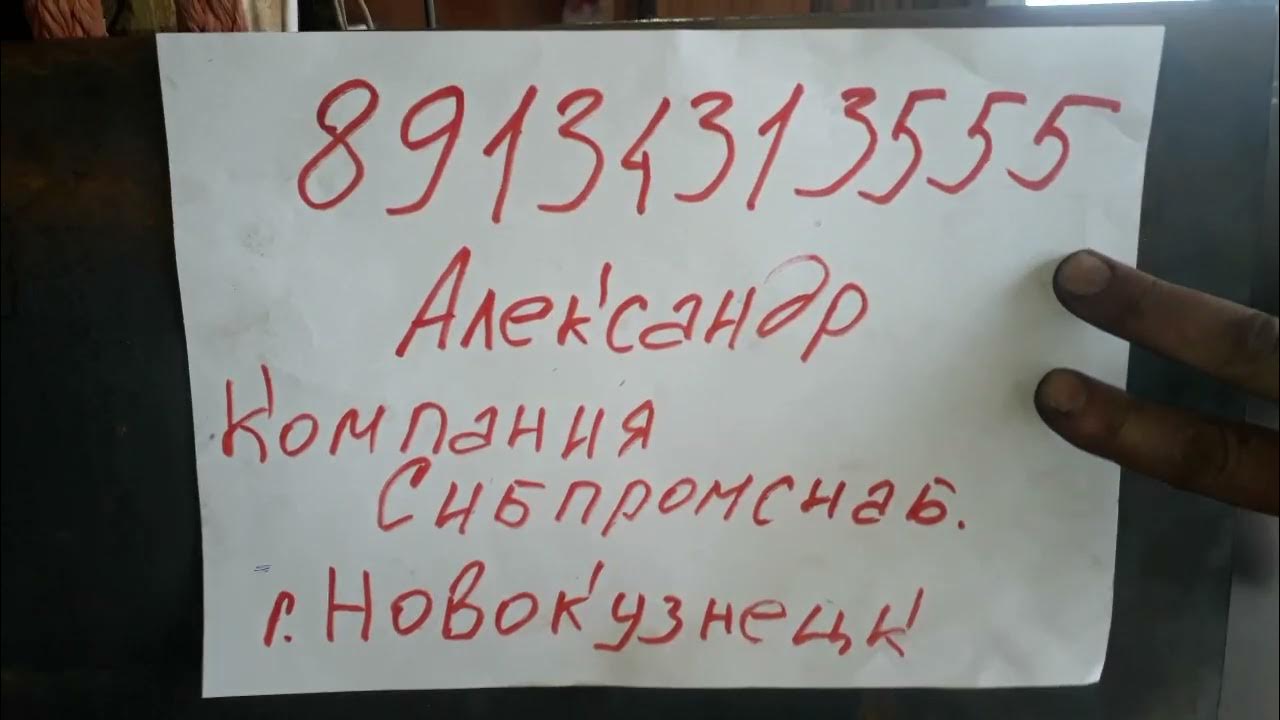 89134313555
Александр
Компания
Сибпромснаб.
г. Новокузнецк